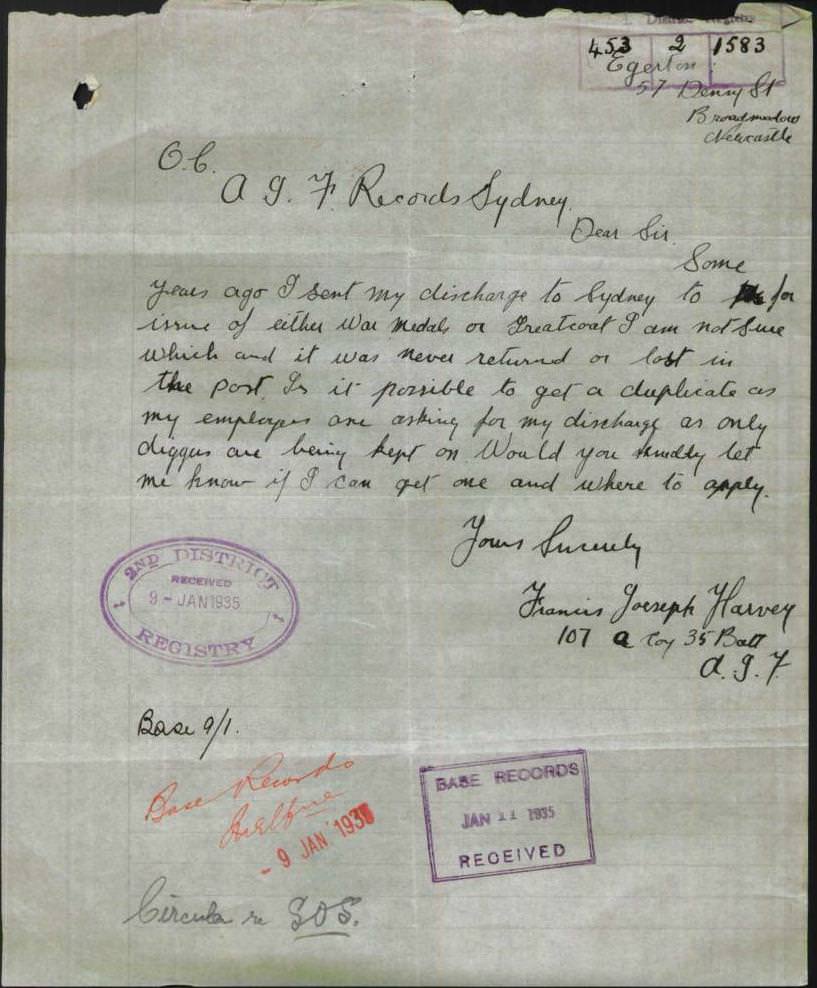 District Registry
453 2 1583
Egerton
57 Denny St
Broadmeadow
Newcastle
O.C.
A I. F. Records Sydney.
Dear Sir.
Some
years ago I sent my discharge to Sydney to for
issue of either War Medals or Greatcoat I am not sure
which and it was never returned or lost in
the post. Is it possible to get a duplicate as
my employers are asking for my discharge as only
diggers are being kept on. Would you kindly let
me know if I can get one and where to apply.
Yours Sincerely
Francis Joeseph Harvey
107 A Coy 35 Batt
A. I. F.
2ND DISTRICT
RECEIVED
9 - JAN 1935
REGISTRY
Base 9/1.
Base Records
- 9 JAN 1935
BASE RECORDS
JAN 11 1935
RECEIVED
Circula re SOS.